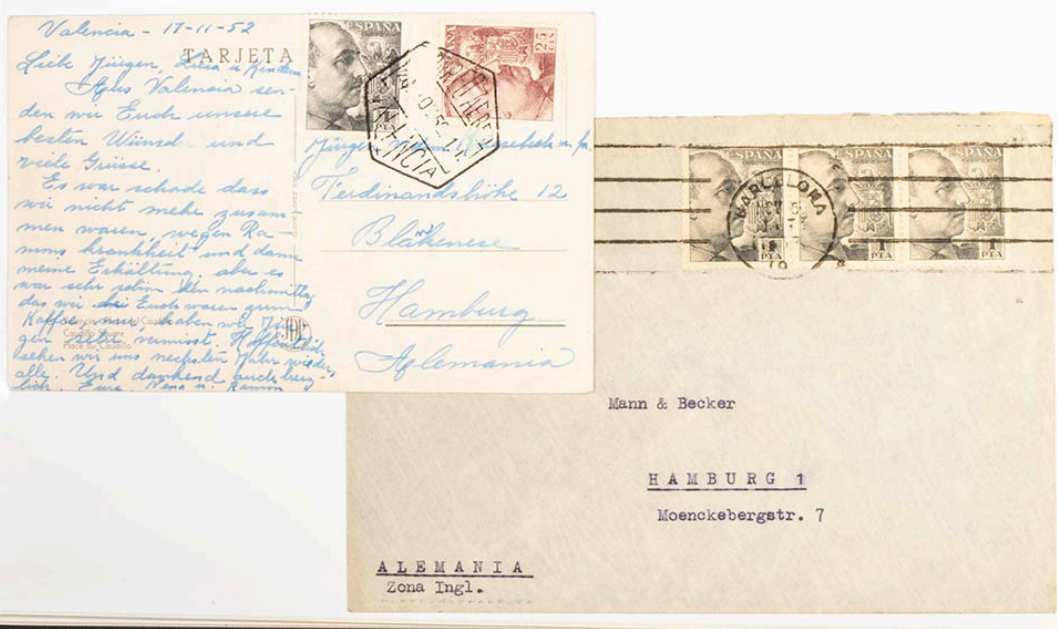 Valencia - 17-11-52
TARJETA
Liebe Jürgen, Luisa u Kindern
Aus Valencia sen-
den wir Euch unsere
besten Wünsche und
viele Grüsse.
Es war schade dass
wir nicht mehr zusam-
men waren, wegen Ra-
mons krankheit und dann
meine Erkältung, aber es
war sehr schön den nachmittag
das wir bei Euch waren zum
Kaffee, nur haben wir Jür-
gen sehr vermisst.
sehen wir uns nechsten Jahr wieder,
alle. Und dankend auch herz-
lich. Eure Nena u. Ramon
Caudillo Square
Place du Caudillo
ESPAÑA
ESPAÑA
25
CTS
CORREO AEREO
VALENCIA
Jürgen u. fa.
Ferdinandshöhe 12
Blankenese
Hamburg
Alemania
ESPAÑA
ESPAÑA
ESPAÑA
BARCELONA
1
1 PTA
1 PTA
Mann & Becker
HAMBURG 1
Moenckebergstr. 7
ALEMANIA
Zona Ingl.